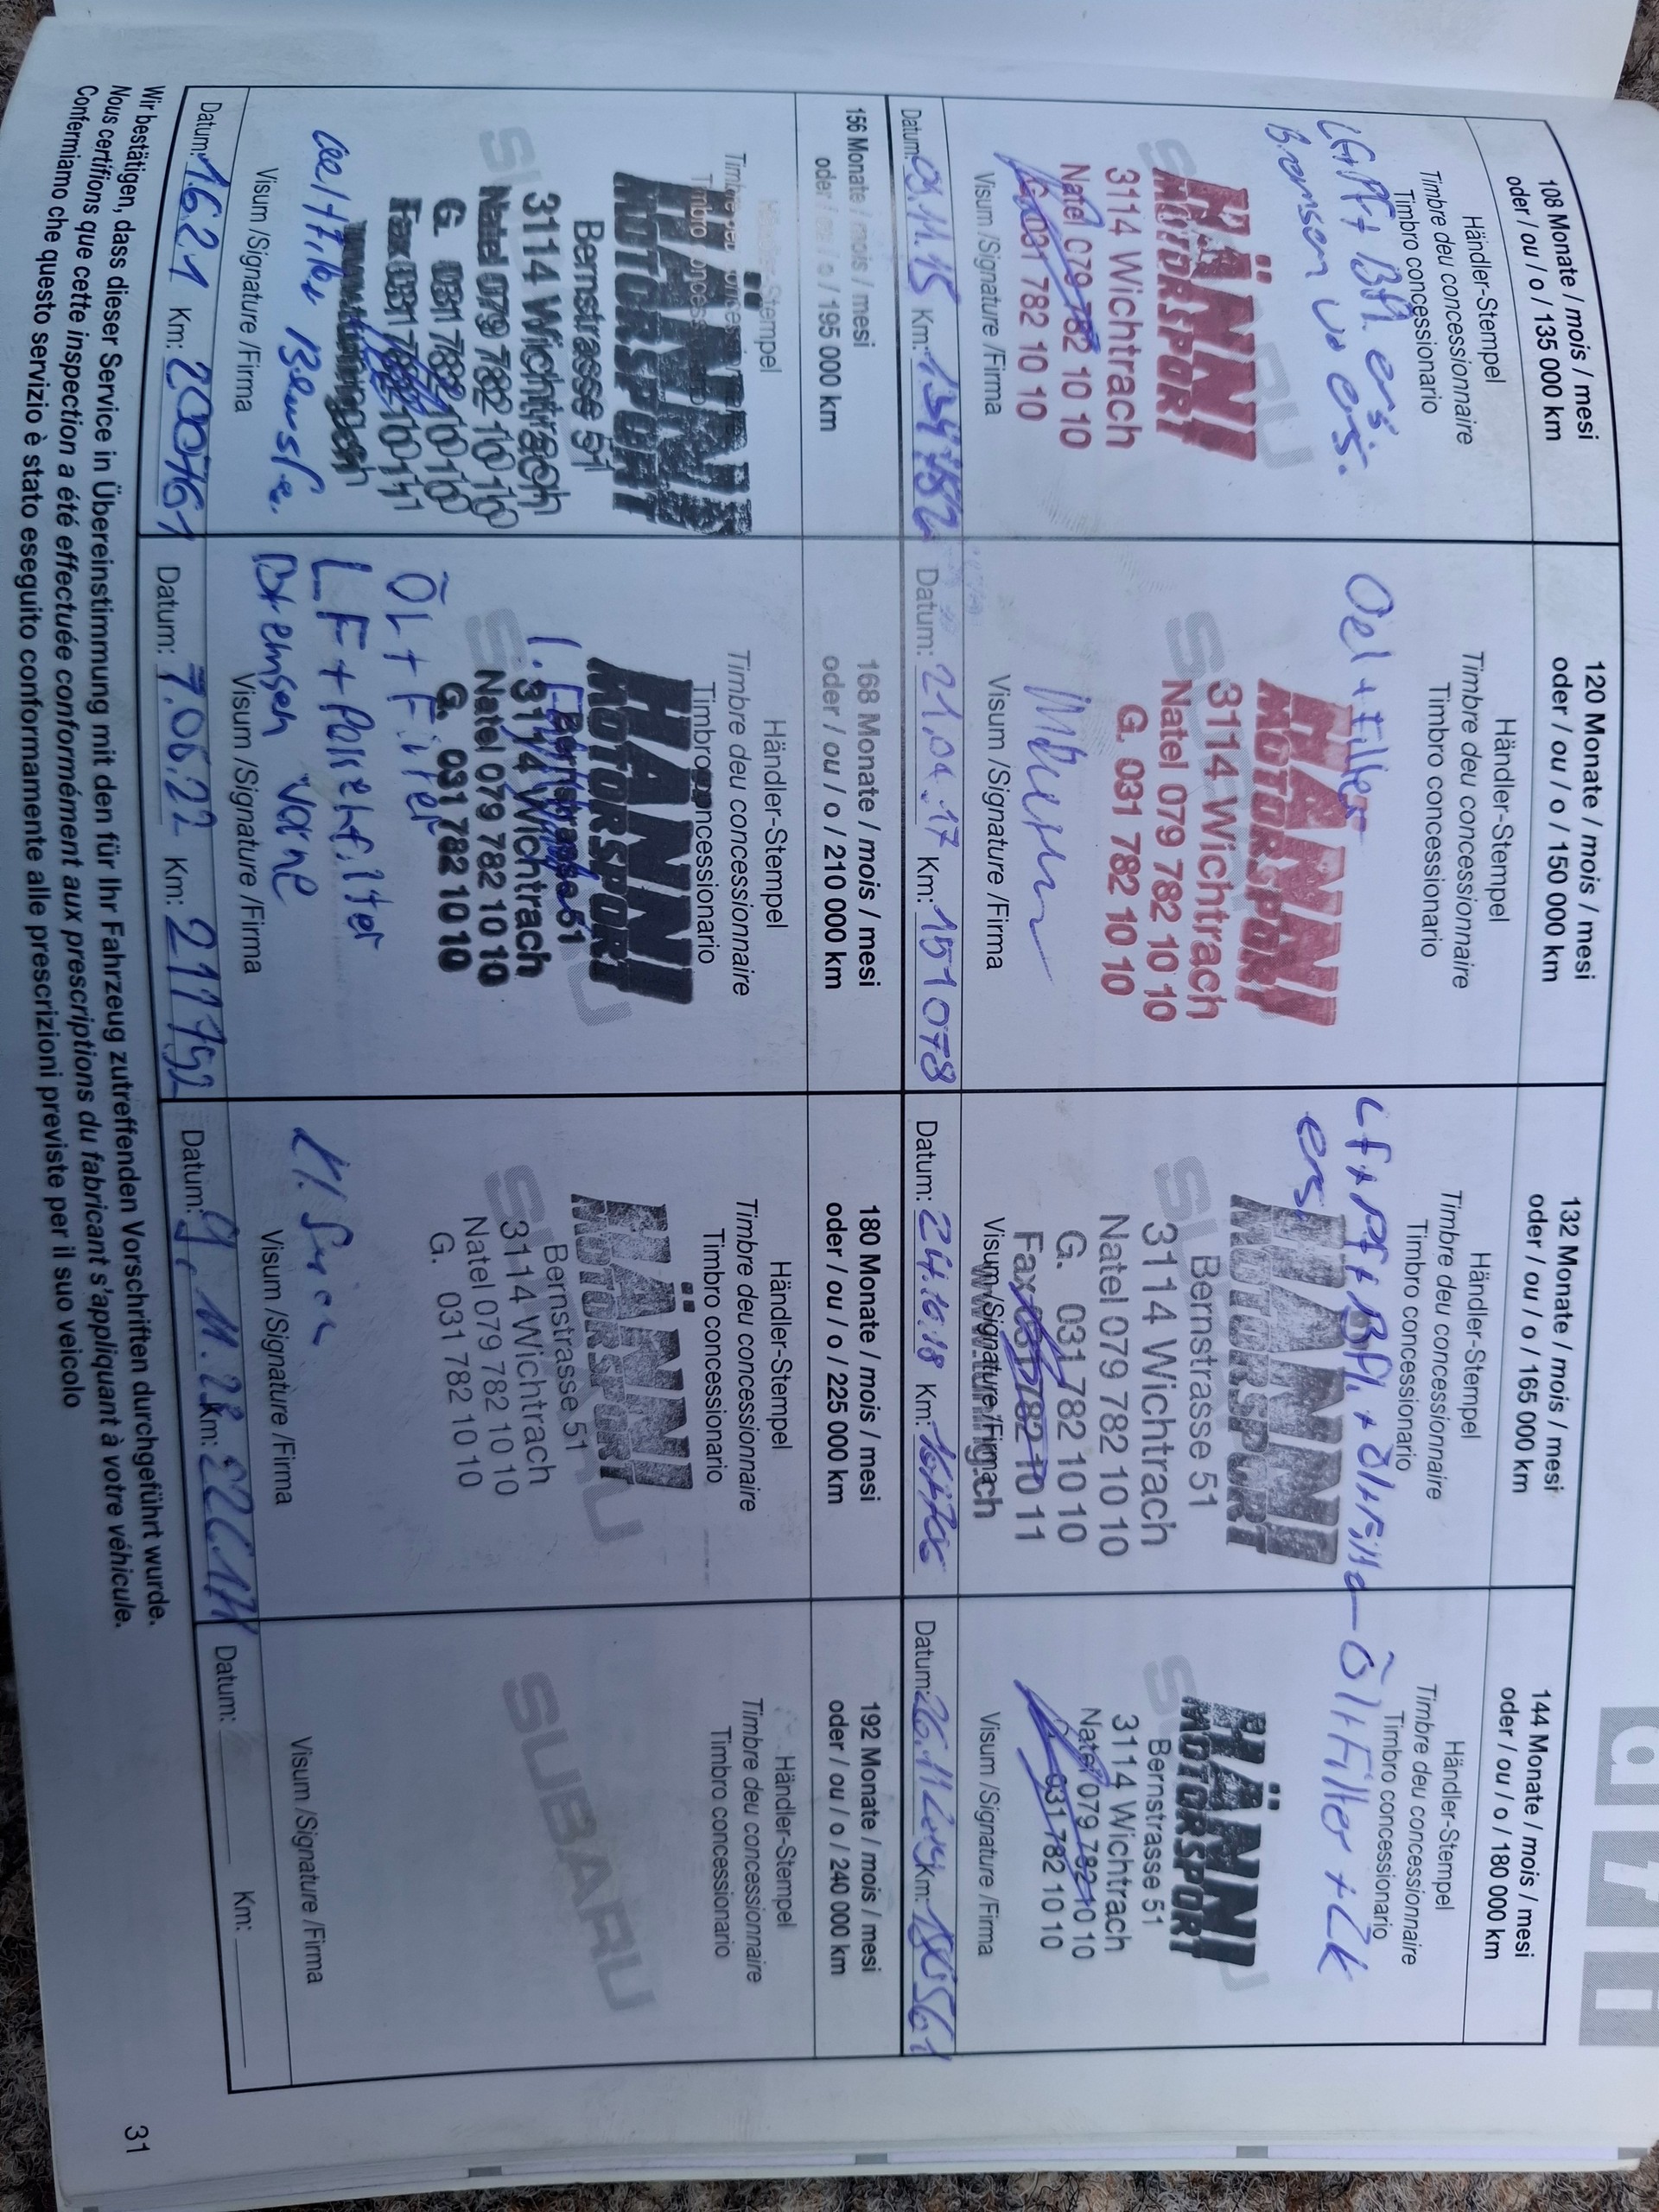 108 Monate / mois / mesi
oder / ou / o / 135 000 km
Händler-Stempel
Timbre deu concessionnaire
Timbro concessionario
Bremsen
HÄNNI
MOTORSPORT
3114 Wichtrach
Natel 079 782 10 10
G. 031 782 10 10
Visum /Signature /Firma
Datum: 09.11.15 Km:
120 Monate / mois / mesi
oder / ou / o / 150 000 km
Händler-Stempel
Timbre deu concessionnaire
Timbro concessionario
Oel + Filter
HÄNNI
MOTORSPORT
3114 Wichtrach
Natel 079 782 10 10
G. 031 782 10 10
Visum /Signature /Firma
Datum: 21.04.17 Km: 151078
132 Monate / mois / mesi
oder / ou / o / 165 000 km
Händler-Stempel
Timbre deu concessionnaire
Timbro concessionario
ers.
HÄNNI
MOTORSPORT
Bernstrasse 51
3114 Wichtrach
Natel 079 782 10 10
G. 031 782 10 10
Fax 031 782 10 11
Visum /Signature /Firma
Datum: 24.10.18 Km:
144 Monate / mois / mesi
oder / ou / o / 180 000 km
Händler-Stempel
Timbre deu concessionnaire
Timbro concessionario
Öl + Filter + ZK
HÄNNI
MOTORSPORT
Bernstrasse 51
3114 Wichtrach
Natel 079 782 10 10
G. 031 782 10 10
Visum /Signature /Firma
Datum: 26.11.2019 Km:
156 Monate / mois / mesi
oder / ou / o / 195 000 km
Händler-Stempel
Timbre deu concessionnaire
Timbro concessionario
HÄNNI
MOTORSPORT
Bernstrasse 51
3114 Wichtrach
Natel 079 782 10 10
G. 031 782 10 10
Fax 031 782 10 11
Visum /Signature /Firma
Datum: 1.6.21 Km: 200761
168 Monate / mois / mesi
oder / ou / o / 210 000 km
Händler-Stempel
Timbre deu concessionnaire
Timbro concessionario
HÄNNI
MOTORSPORT
Bernstrasse 51
3114 Wichtrach
Natel 079 782 10 10
G. 031 782 10 10
ÖL + Filter
LF + Pollenfilter
Bremsen vorne
Visum /Signature /Firma
Datum: 7.06.22 Km: 211792
180 Monate / mois / mesi
oder / ou / o / 225 000 km
Händler-Stempel
Timbre deu concessionnaire
Timbro concessionario
HÄNNI
MOTORSPORT
Bernstrasse 51
3114 Wichtrach
Natel 079 782 10 10
G. 031 782 10 10
Visum /Signature /Firma
Datum: 9.11.23 Km:
192 Monate / mois / mesi
oder / ou / o / 240 000 km
Händler-Stempel
Timbre deu concessionnaire
Timbro concessionario
SUBARU
Visum /Signature /Firma
Datum: Km:
Wir bestätigen, dass dieser Service in Übereinstimmung mit den für Ihr Fahrzeug zutreffenden Vorschriften durchgeführt wurde.
Nous certifions que cette inspection a été effectuée conformément aux prescriptions du fabricant s'appliquant à votre véhicule.
Confermiamo che questo servizio è stato eseguito conformamente alle prescrizioni previste per il suo veicolo
31